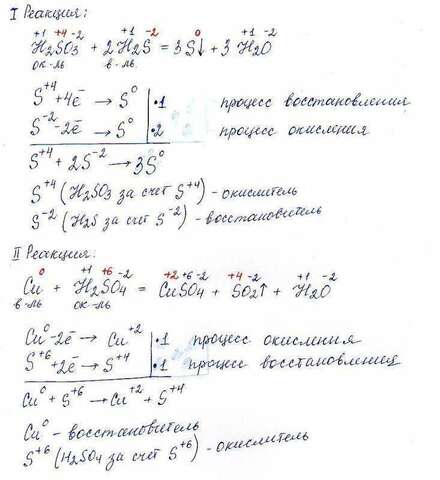 I Реакция:
+1 +4 -2 +1 -2 0 +1 -2
H₂SO₃ + 2H₂S = 3S↓ + 3 H₂O
ок-ль в-ль
S⁺⁴ + 4ē → S⁰ | ·1 процесс восстановления
S⁻² - 2ē → S⁰ | ·2 процесс окисления
S⁺⁴ + 2S⁻² → 3S⁰
S⁺⁴ (H₂SO₃ за счет S⁺⁴) - окислитель
S⁻² (H₂S за счет S⁻²) - восстановитель
II Реакция:
0 +1 +6 -2 +2 +6 -2 +4 -2 +1 -2
Cu + H₂SO₄ = CuSO₄ + SO₂↑ + H₂O
в-ль ок-ль
Cu⁰ - 2ē → Cu⁺² | ·1 процесс окисления
S⁺⁶ + 2ē → S⁺⁴ | ·1 процесс восстановления
Cu⁰ + S⁺⁶ → Cu⁺² + S⁺⁴
Cu⁰ - восстановитель
S⁺⁶ (H₂SO₄ за счет S⁺⁶) - окислитель